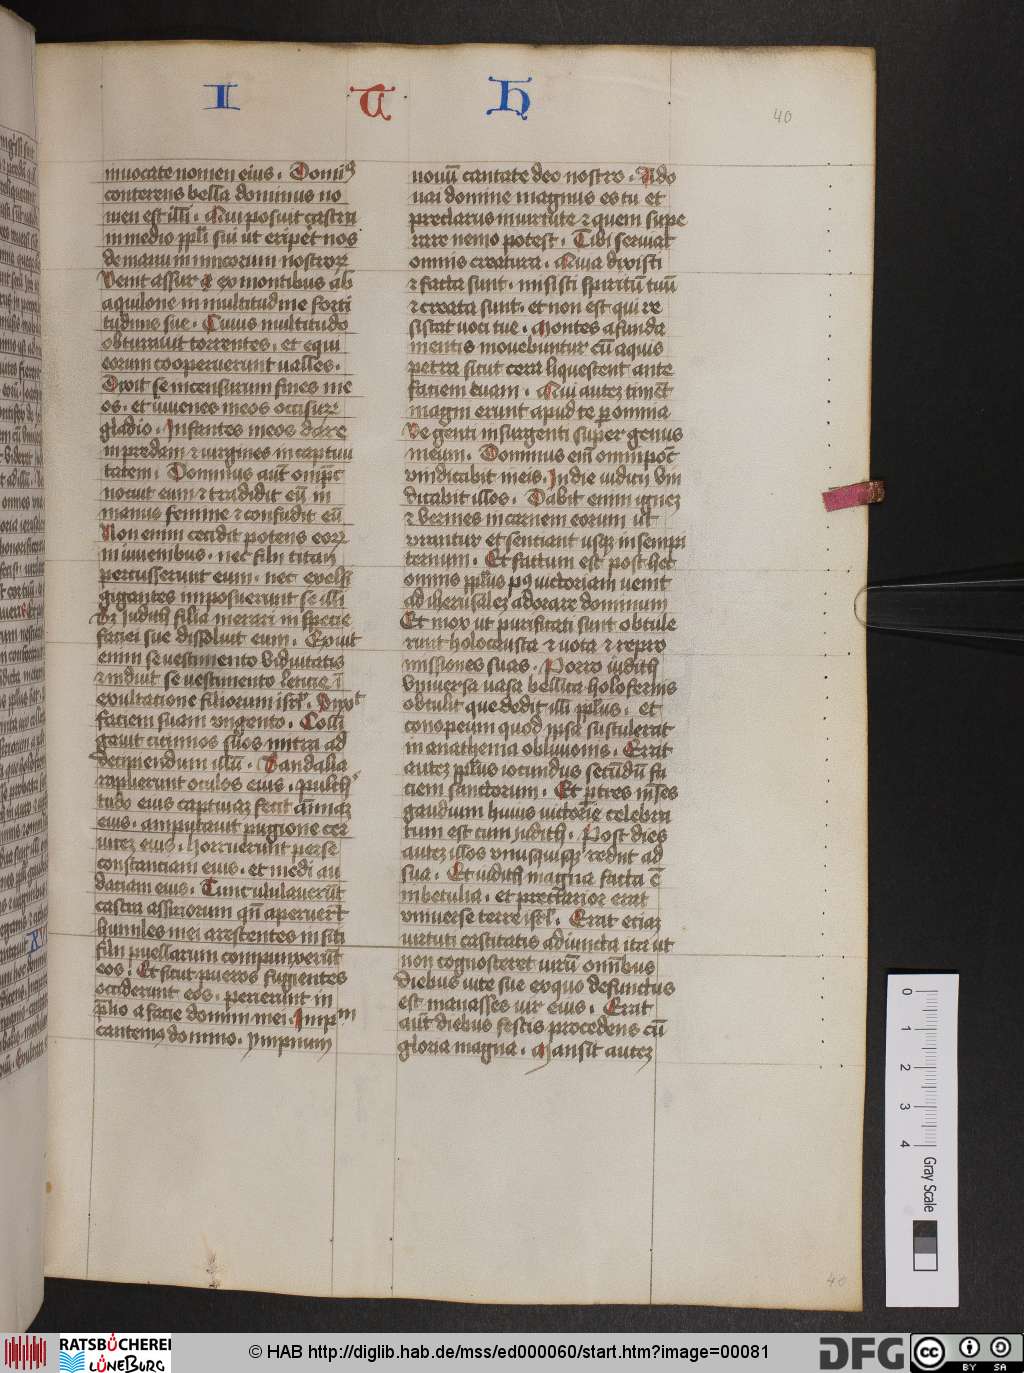 I T H
40
inuocate nomen eius . Domī9
conterens bella dominus no
men est illi . Qui posuit castra
in medio ppl̄i sui ut eriperet nos
de manu inimicorum nostroꝝ
Venit assur ex montibus ab
aquilone in multitudine forti
tudinis sue . Cuius multitudo
obturauit torrentes . et equi
eorum cooperuerunt ualles .
Dixit se incensurum fines me
os . et iuuenes meos occisurꝝ
gladio . Infantes meos dare
in predam ⁊ uirgines in captiui
tatem . Dominus aūt om̄ps
nocuit eum ⁊ tradidit eū in
manus femine ⁊ confudit eū
Non enim cecidit potens eoꝝ
in iuuenibus . nec filii titan
percusserunt eum . nec excelsi
gigantes imposuerunt se illi
Sꝫ Judith filia merari in specie
faciei sue dissoluit eum . Exuit
enim se uestimento viduitatis
⁊ induit se uestimento leticie ī
exultatione filiorum isrl̄ . Vnxit
faciem suam vngento . Colli
gauit cicinnos suos mitra ad
decipiendum illū . Sandalia
rapuerunt oculos eius . pulch
tudo eius captiuaꝫ fecit aīmaꝫ
eius . amputauit pugione cer
uiceꝫ eius . Horruerunt perse
constanciam eius . et medi au
daciam eius . Tunc ululauerūt
castra assiriorum qn̄ aperuert̄
humiles mei arescentes in siti
filii puellarum compunxerūt
eos . Et sicut pueros fugientes
occiderunt eos . perierunt in
p̄lio a facie domini mei . Impm
cantemꝰ domino . ympnum
nouū cantate deo nostro . Ado
nai domine magnus es tu et
preclarus in uirtute ⁊ quem supe
rare nemo potest . Tibi seruiat
omnis creatura . Quia dixisti
⁊ facta sunt . misisti spiritū tuū
⁊ creata sunt . et non est qui re
sistat uoci tue . Montes a funda
mentis mouebuntur cū aquis
petra sicut cera liquescent ante
faciem tuam . Qui auteꝫ timēt
magni erunt apud te per omnia
Ve genti insurgenti super genus
meum . Dominus eīm omnipoc̄
vindicabit in eis . In die iudicii vin
dicabit illos . Dabit enim igneꝫ
⁊ vermes in carnem eorum ut
vrantur et sentiant usqꝫ in sempi
ternum . Et factum est post hec
omnis ppl̄us pꝰ uictoriam uenit
ad iherusaleꝫ adorare dominum
Et mox ut purificati sunt obtule
runt holocausta ⁊ uota ⁊ repro
missiones suas . Porro iudith
vniuersa uasa bellica holofernis
obtulit que dedit illi ppl̄us . et
conopeum quod ipsa sustulerat
in anathema obliuionis . Erat
auteꝫ ppl̄us iocundus secūdū fa
ciem sanctorum . Et p̄ tres m̄ses
gaudium huius uictorie celebra
tum est cum iudith . Post dies
auteꝫ illos vnusquisqꝫ rediit ad
sua . Et iudith magna facta ē
in betulia . et preclarior erat
vniuerse terre isrl̄ . Erat etiaꝫ
uirtuti castitatis adiuncta ita ut
non cognosceret uirū omībus
diebus uite sue ex quo defunctus
est manasses uir eius . Erat
aūt diebus festis procedens cū
gloria magna . Mansit auteꝫ
40
0 1 2 3 4
Gray Scale
RATSBÜCHEREI
LÜNEBURG
© HAB http://diglib.hab.de/mss/ed000060/start.htm?image=00081
DFG
cc BY SA